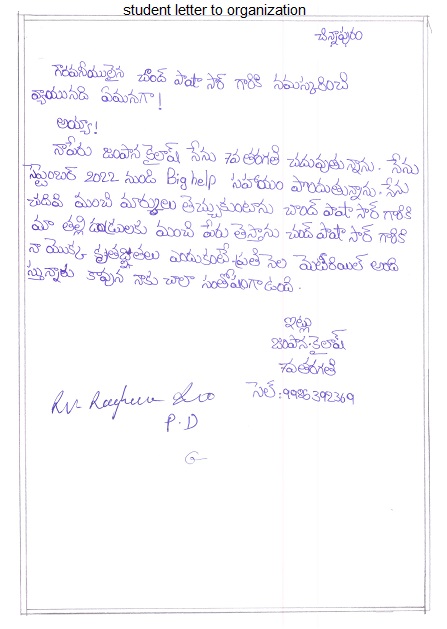 student letter to organization
చిన్నాపురం
గౌరవనీయులైన చాంద్ పాషా సార్ గారికి నమస్కరించి
వ్రాయునది ఏమనగా!
అయ్యా!
నాపేరు జంపాన కైలాష్ నేను 7వ తరగతి చదువుతున్నాను. నేను
సెప్టెంబర్ 2022 నుండి Bighelp సహాయం పొందుతున్నాను. నేను
చదివి మంచి మార్కులు తెచ్చుకుంటాను చాంద్ పాషా సార్ గారికి
మా తల్లిదండ్రులకు మంచి పేరు తెస్తాను చాంద్ పాషా సార్ గారికి
నా యొక్క కృతజ్ఞతలు ఎందుకంటే ప్రతి నెల మెటీరియల్ అంది
స్తున్నారు కావున నాకు చాలా సంతోషంగా ఉంది.
ఇట్లు
జంపాన. కైలాష్
7వ తరగతి
సెల్: 9986392369
P.D